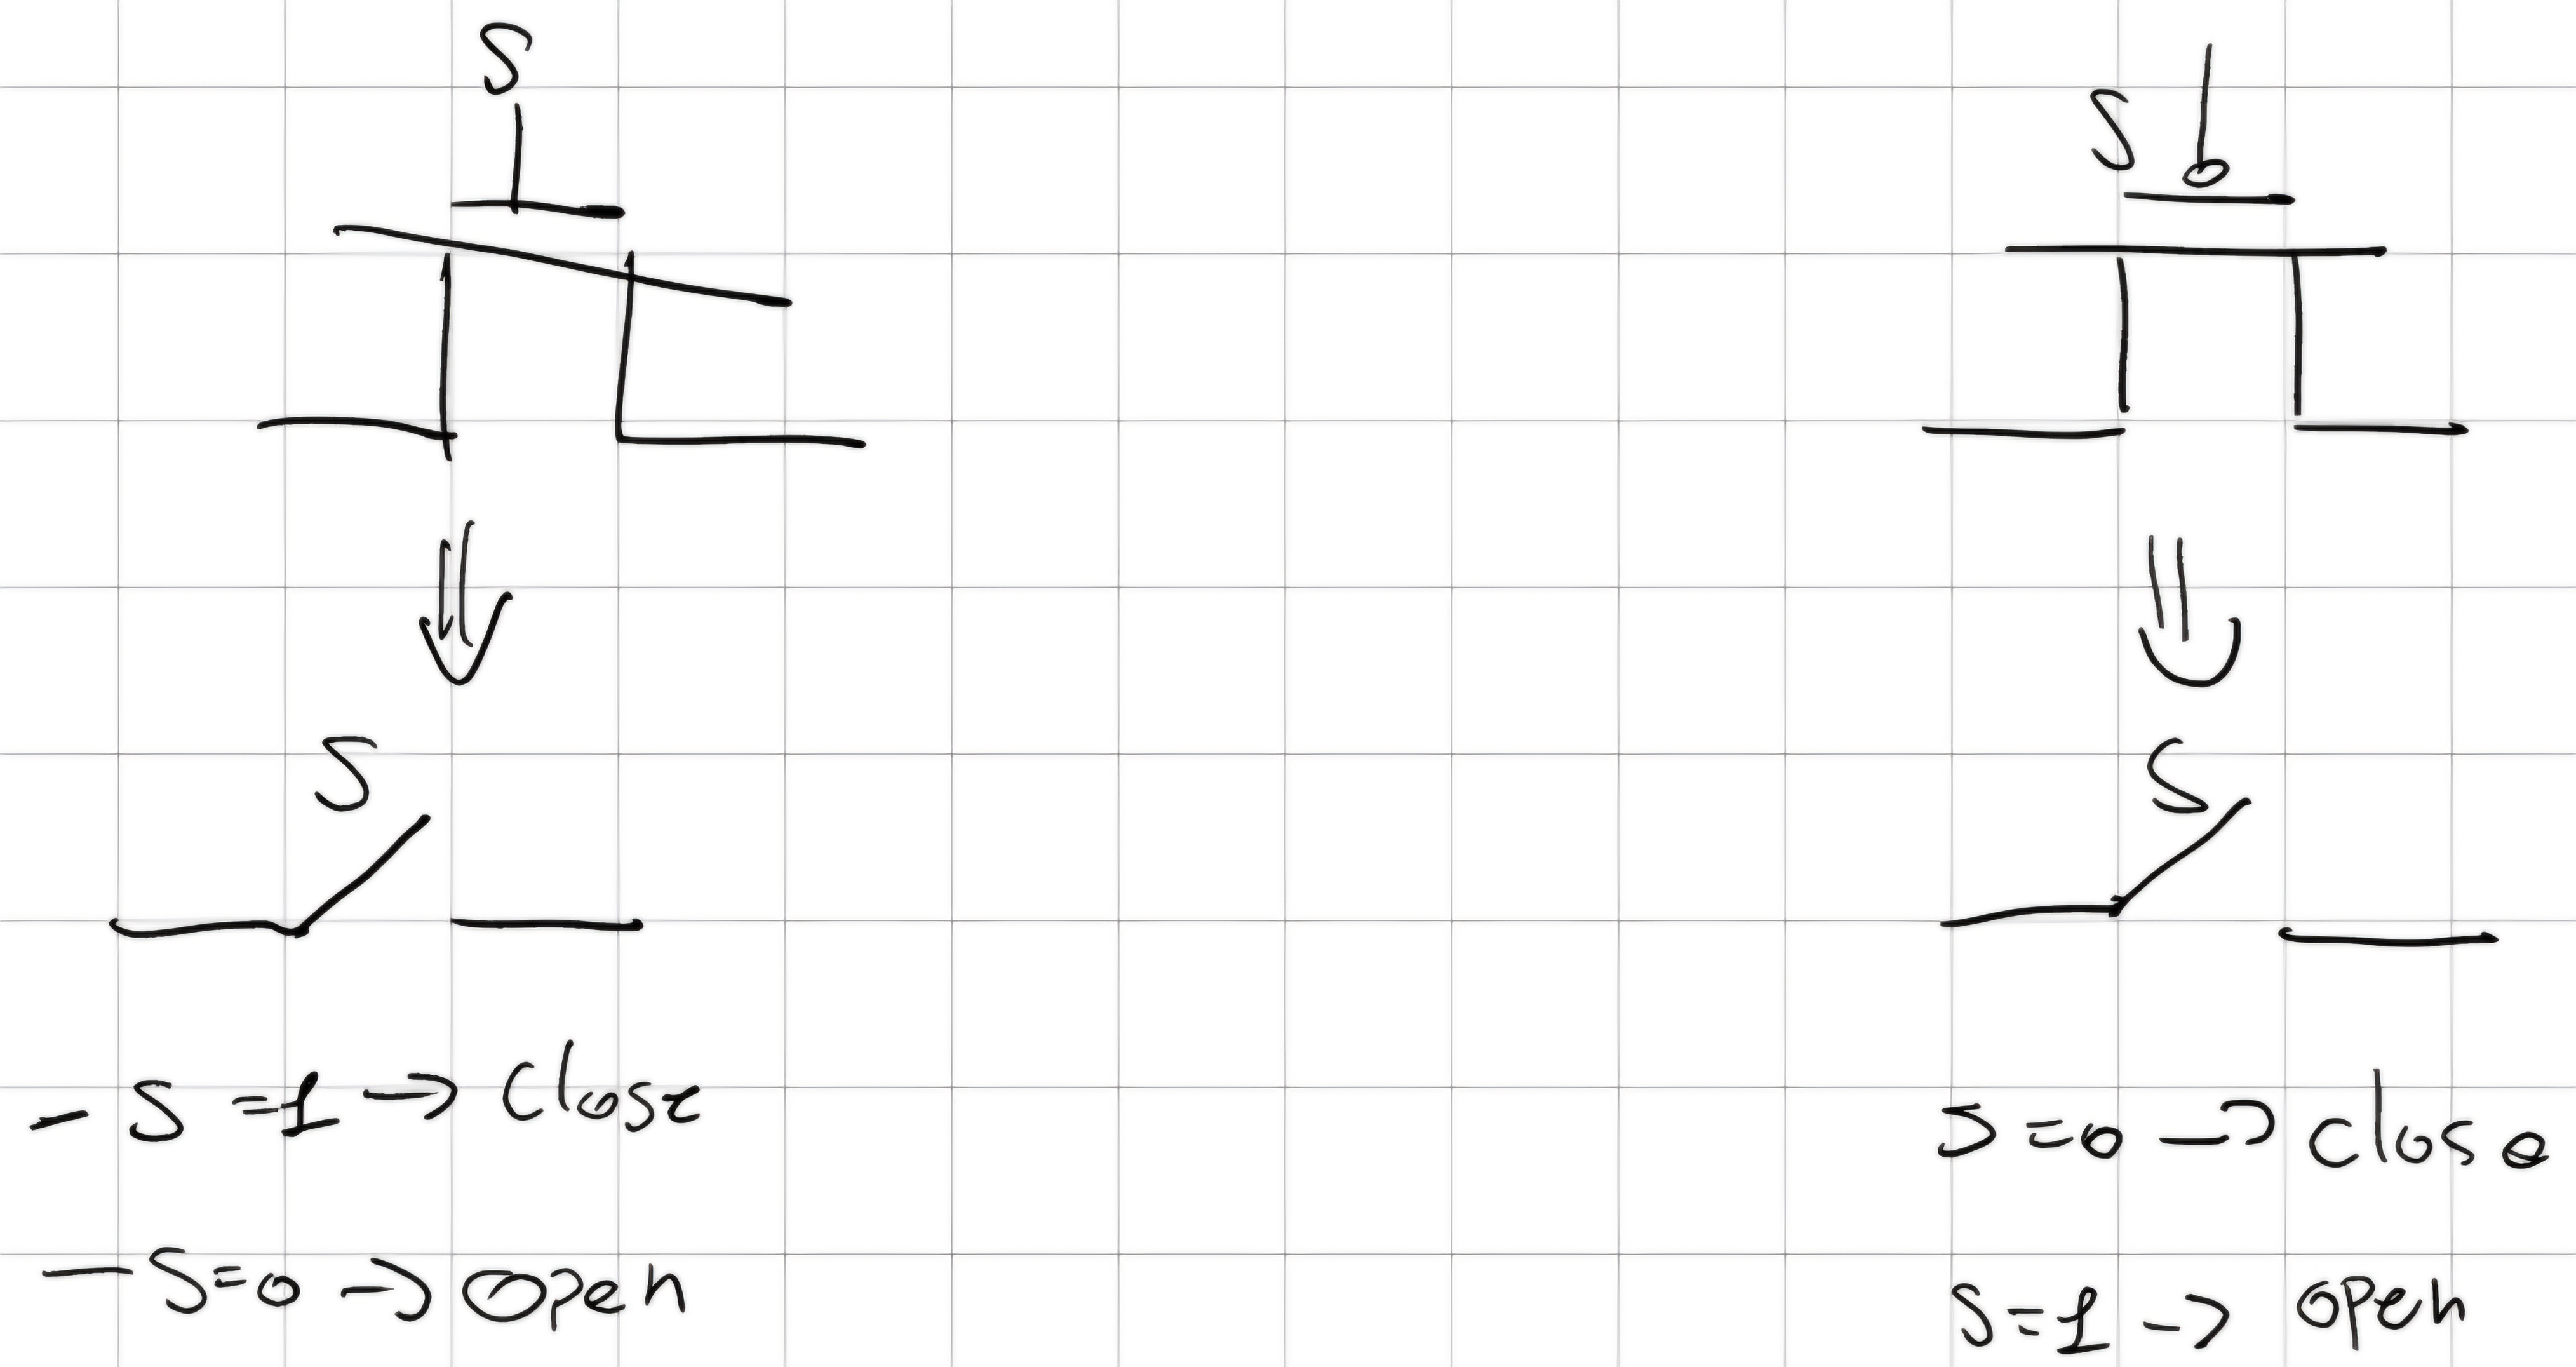 S
S
S
S
- S = 1 → close
- S = 0 → open
S = 0 → close
S = 1 → open